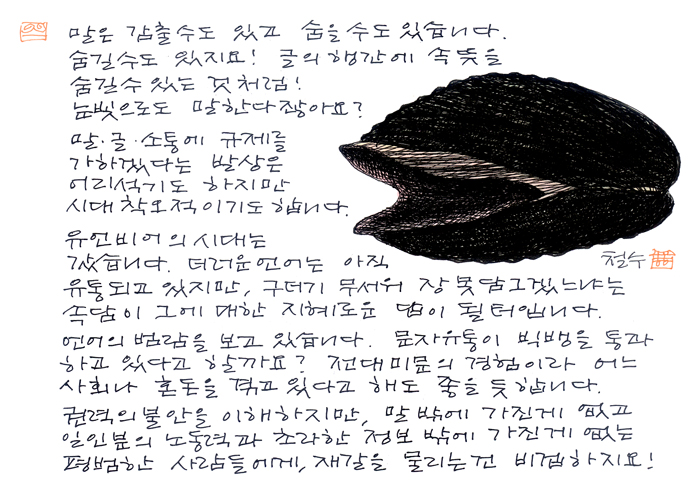 말은 감출수도 있고 숨을수도있습니다.
숨길수도 있지요! 글의행간에 속뜻을
숨길수 있는 것처럼!
눈빛으로도 말한다잖아요?
말·글·소통에 규제를
가하겠다는 발상은
어리석기도 하지만
시대착오적이기도합니다.
유언비어의시대는
갔습니다. 더러운언어는 아직
유통되고 있지만, 구더기 무서워 장못담그겠느냐는
속담이 그에 대한 지혜로운 답이 될터입니다.
언어의 범람을 보고 있습니다. 문자유통이 빅뱅을 통과
하고 있다고 할까요? 전대미문의 경험이라 어느
사회나 혼돈을 겪고 있다고 해도 좋을듯합니다.
권력의불안을 이해하지만, 말 밖에 가진게 없고
일인분의 노동력과 초라한 정보 밖에 가진게 없는
평범한 사람들에게, 재갈을 물리는건 비겁하지요!
철수